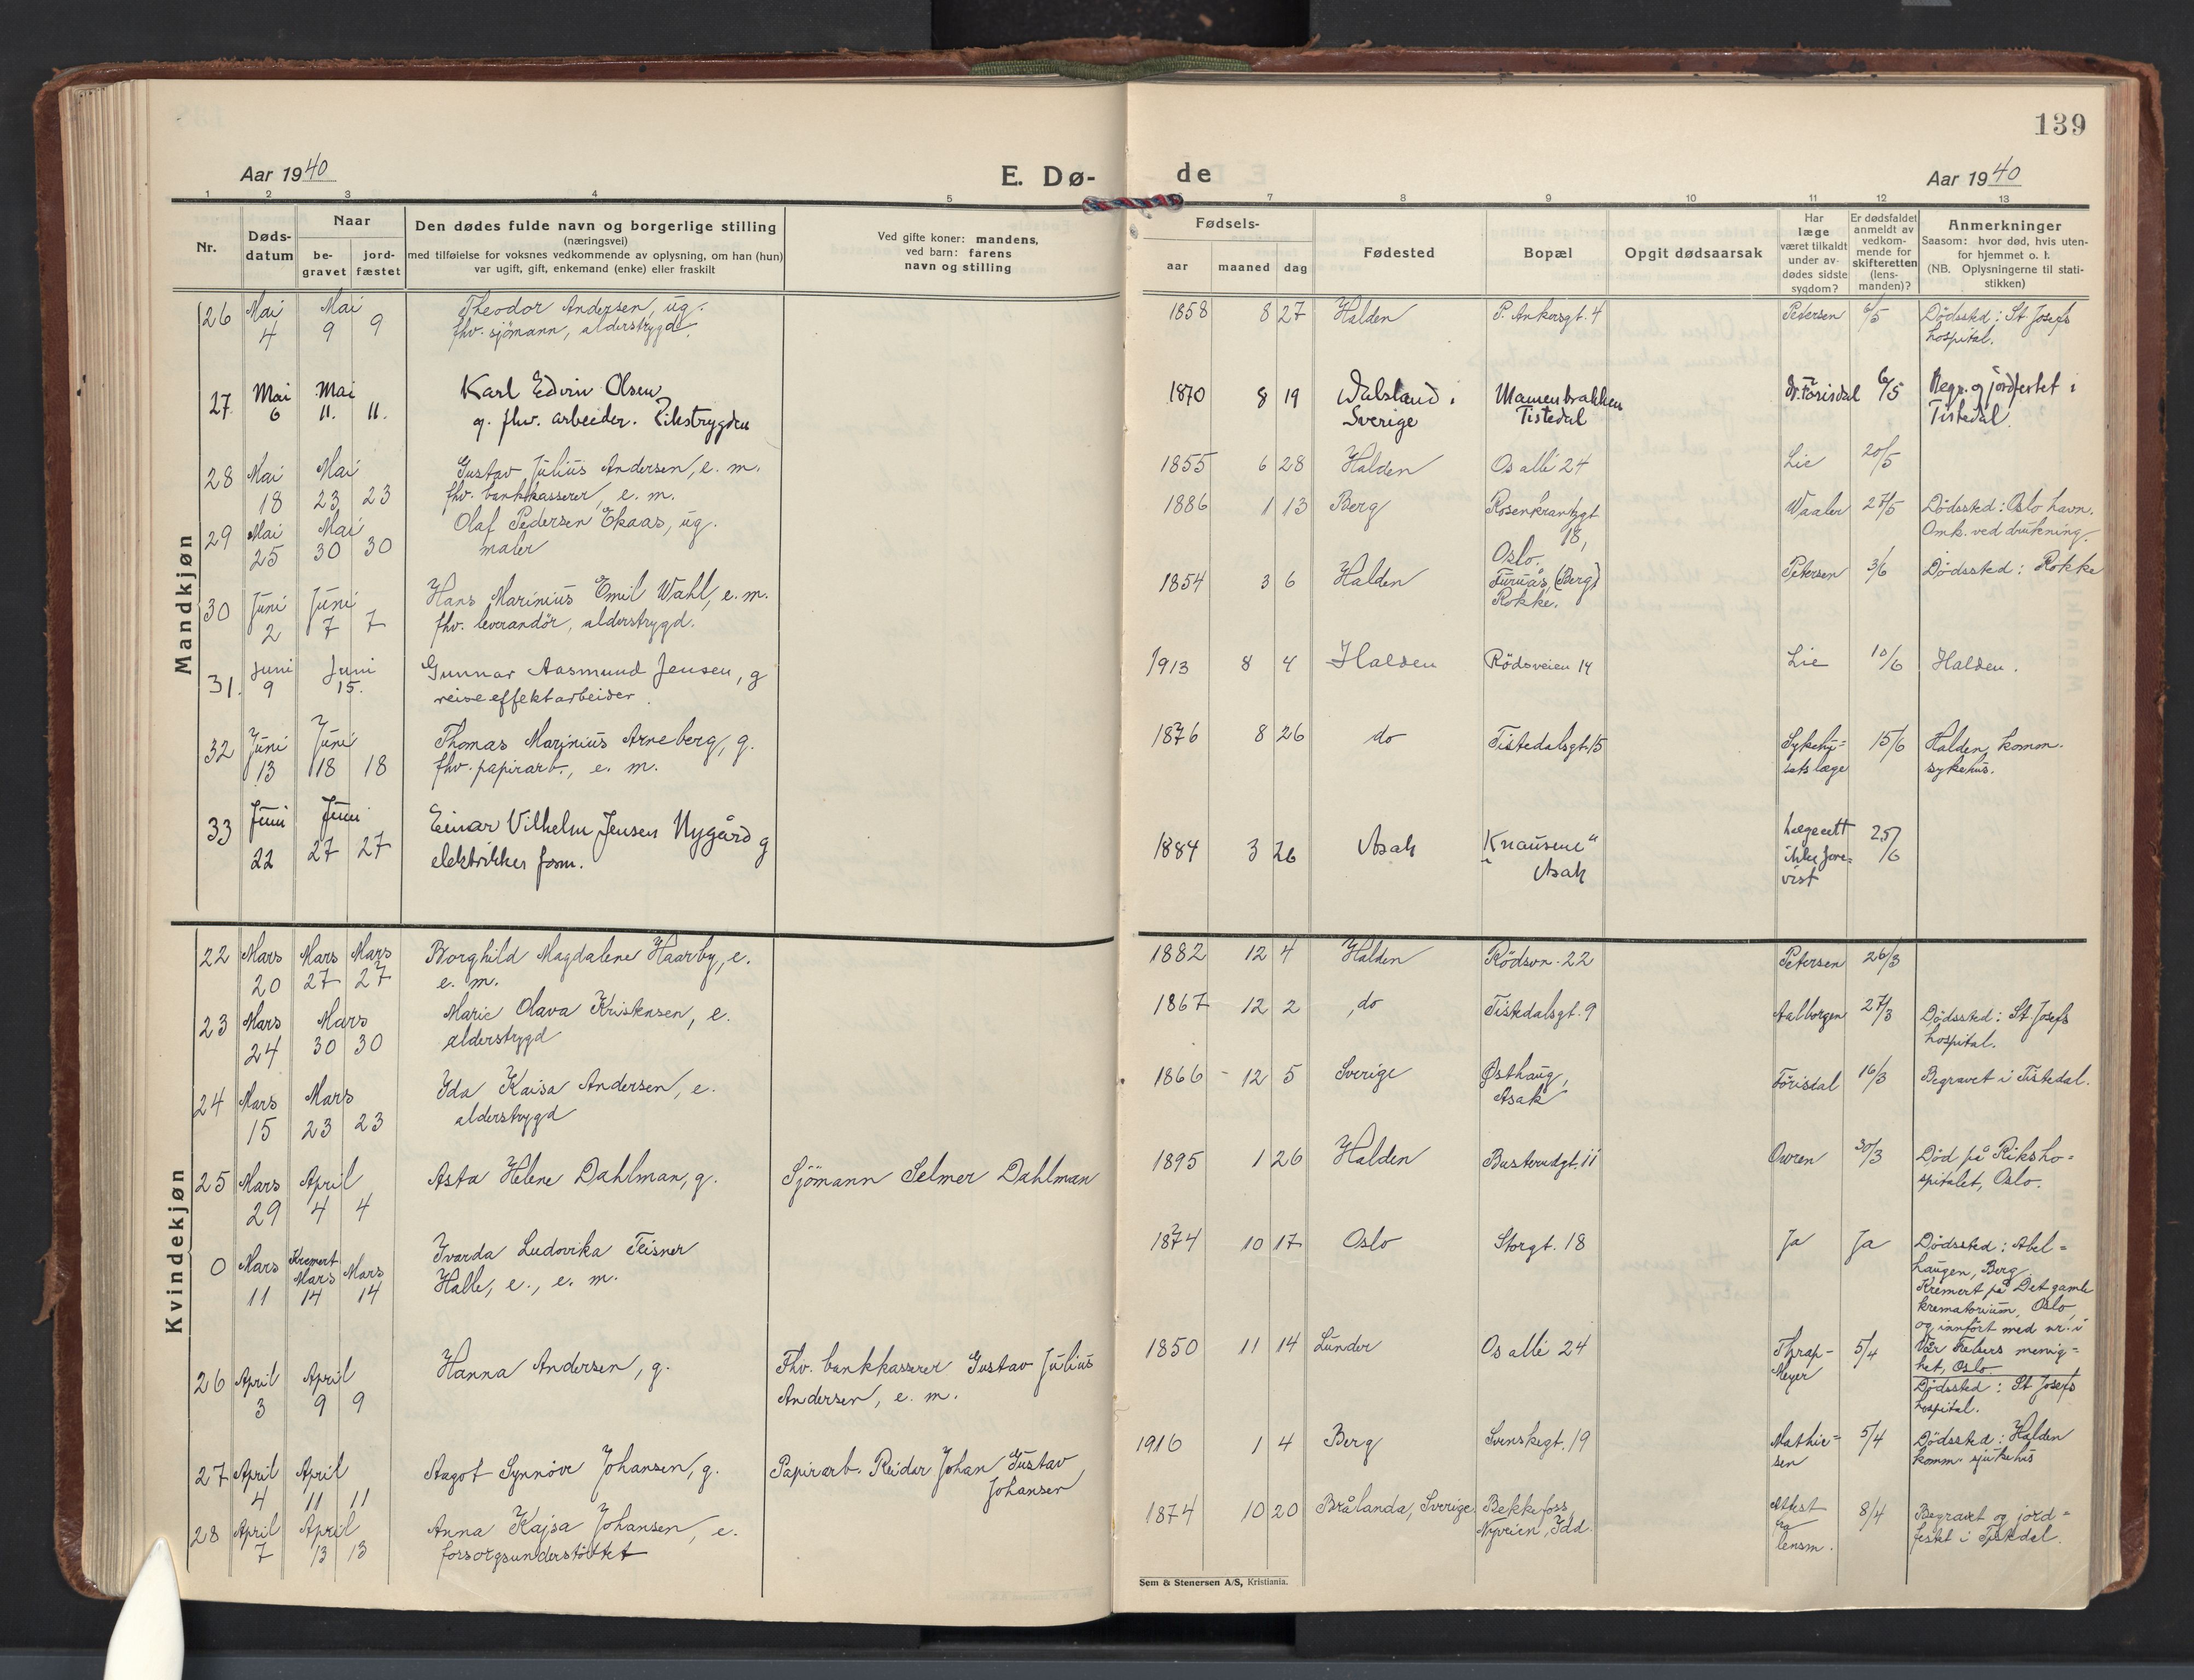 139
Aar 1940
E. Dø-
de
Aar 1940
1 2 3 4 5
7 8 9 10 11 12 13
Nr.
Døds-
datum
Naar
be-
gravet
jord-
fæstet
Den dødes fulde navn og borgerlige stilling
(næringsvei)
med tilføielse for voksnes vedkommende av oplysning, om han (hun)
var ugift, gift, enkemand (enke) eller fraskilt
Ved gifte koner: mandens,
ved barn: farens
navn og stilling
Fødsels-
aar maaned dag
Fødested
Bopæl
Opgit dødsaarsak
Har
læge
været tilkaldt
under av-
dødes sidste
sygdom?
Er dødsfaldet
anmeldt av
vedkom-
mende for
skifteretten
(lens-
manden)?
Anmerkninger
Saasom: hvor død, hvis uten-
for hjemmet o. l.
(NB. Oplysningerne til stati-
stikken)
Mandkjøn
26 Mai Mai Theodor Andersen, ug. 1858 8 27 Halden P. Ankersgt. 4 Petersen 6/5 Dödssted: St. Josefs
4 9 9 fhv. sjömann, alderstrygd. hospital.
27. Mai Mai Karl Edvin Olsen 1870 8 19 Dalsland i Mamenbrakken Dr. Förisdal 6/5 Begr. og jordfestet i
6 11. 11. g. fhv. arbeider. Sverige Tistedal Tistedal.
28 Mai Mai Gustav Julius Andersen, e. m. 1855 6 28 Halden Os allé 24 Lie 20/5
18 23 23 fhv. bankkasserer, e. m.
29 Mai Mai Olaf Pedersen Ekaas, ug. 1886 1 13 Berg Rosenkrantzgt. Waaler 27/5 Dödssted: Oslo havn.
25 30 30 maler 18, Omk. ved drukning.
Oslo.
30 Juni Juni Hans Marinius Emil Wahl, e. m. 1854 3 6 Halden Furuås, (Berg) Petersen 3/6 Dödssted: Rokke
2 7 7 fhv. leverandör, alderstrygd. Rokke.
31. Juni Juni Gunnar Aasmund Jensen, g 1913 8 4 Halden Rödsveien 14 Lie 10/6 Halden.
9 15. reiseeffektarbeider.
32 Juni Juni Thomas Marinius Arneberg, g. 1876 8 26 do Tistedalsgt. 15 15/6 Halden komm.
13 18 18 fhv. papirarb., e. m. læge sykehus.
33 Juni Juni Einar Vilhelm Jensen Nygård g 1884 3 26 Asak "Knausene" Lægeatt 25/6
22 27 27 elektriker form. Asak ikke fore-
vist
Kvindekjøn
22 Mars Mars Mars Borghild Magdalene Haarby, e. 1882 12 4 Halden Rödsvn. 22 Petersen 26/3
20 27 27 e. m.
23 Mars Mars Marie Olava Kristensen, e. 1867 12 2 do Tistedalsgt. 9 Aalborgen 27/3 Dödssted: St. Josefs
24 30 30 alderstrygd hospital.
24 Mars Mars Ida Kaisa Andersen, e. 1866 12 5 Sverige Østhaug, Förisdal 16/3 Begravet i Tistedal.
15 23 23 alderstrygd Asak
25 Mars April Asta Helene Dahlman, g. Sjömann Selmer Dahlman 1895 1 26 Halden Busterudgt. 11 Owren 30/3 Död på Riksho-
29 4 4 spitalet, Oslo.
0 Mars Kremert Mars Mars Ivarda Ludovika Teisner 1874 10 17 Oslo Storgt. 18 Ja Ja Dödssted: Abel-
11 14 14 Halle, e., e. m. haugen, Berg.
Kremert på Det gamle
krematorium, Oslo,
og innfört med nr. i
Vår Frelsers menig-
het, Oslo.
26 April April Hanna Andersen, g. Fhv. bankkasserer Gustav Julius 1850 11 14 Lunder Os allé 24 Thrap- 5/4 Dödssted: St. Josefs
3 9 9 Andersen, e. m. Meyer hospital.
27 April April Aagot Synnöve Johansen, g. Papirarb. Reidar Johan Gustav 1916 1 4 Berg Svenskegt. 19 Mathie- 5/4 Dödssted: Halden
4 11 11 Johansen sen komm. sjukehus
28 April April Anna Kajsa Johansen, e. 1874 10 20 Brålanda, Sverige. Bekkefoss, Attest 8/4 Begravet og jord-
7 13 13 forsorgsunderstöttet Nyveien, Idd. fra festet i Tistedal.
lensm.
Sem & Stenersen A/S, Kristiania.